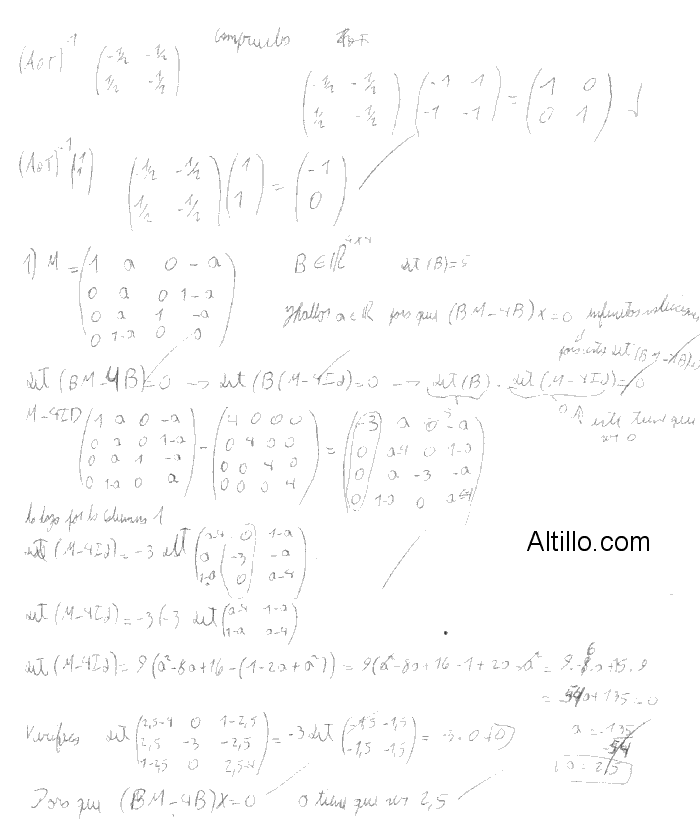 (AoT)⁻¹ (-1/2 -1/2; 1/2 -1/2)
(-1/2 -1/2; 1/2 -1/2) (-1 1; -1 -1) = (1 0; 0 1) √
(AoT)⁻¹(1; 1) (-1/2 -1/2; 1/2 -1/2) (1; 1) = (-1; 0)
1) M = (1 a 0 -a; 0 a 0 1-a; 0 a 1 -a; 0 1-a 0 a) B ∈ ℝ⁴ˣ⁴ det (B) = 5
a ∈ ℝ para que (BM-4B) X = 0 infinitas soluciones
det (BM-4B) = 0 → det (B(M-4Id) = 0 → det (B) . det (M-4Id) = 0
este tiene que ser 0
M-4ID (1 a 0 -a; 0 a 0 1-a; 0 a 1 -a; 0 1-a 0 a) - (4 0 0 0; 0 4 0 0; 0 0 4 0; 0 0 0 4) = (-3 a 0 -a; 0 a-4 0 1-a; 0 a -3 -a; 0 1-a 0 a-4)
lo hago por la columna 1
det (M-4Id) = -3 det (a-4 0 1-a; a -3 -a; 1-a 0 a-4)
Altillo.com
det (M-4Id) = -3(-3 det (a-4 1-a; 1-a a-4)
det (M-4Id) = 9(a²-8a+16-(1-2a+a²)) = 9(a²-8a+16-1+2a-a² = 9.-6a+15.9
= -54a+135=0
Verifico det (2,5-4 0 1-2,5; 2,5 -3 -2,5; 1-2,5 0 2,5-4) = -3 det (-1,5 -1,5; -1,5 -1,5) = -3.0 = 0
a = -135/-54
a = 2,5
Para que (BM-4B)X=0 a tiene que ser 2,5